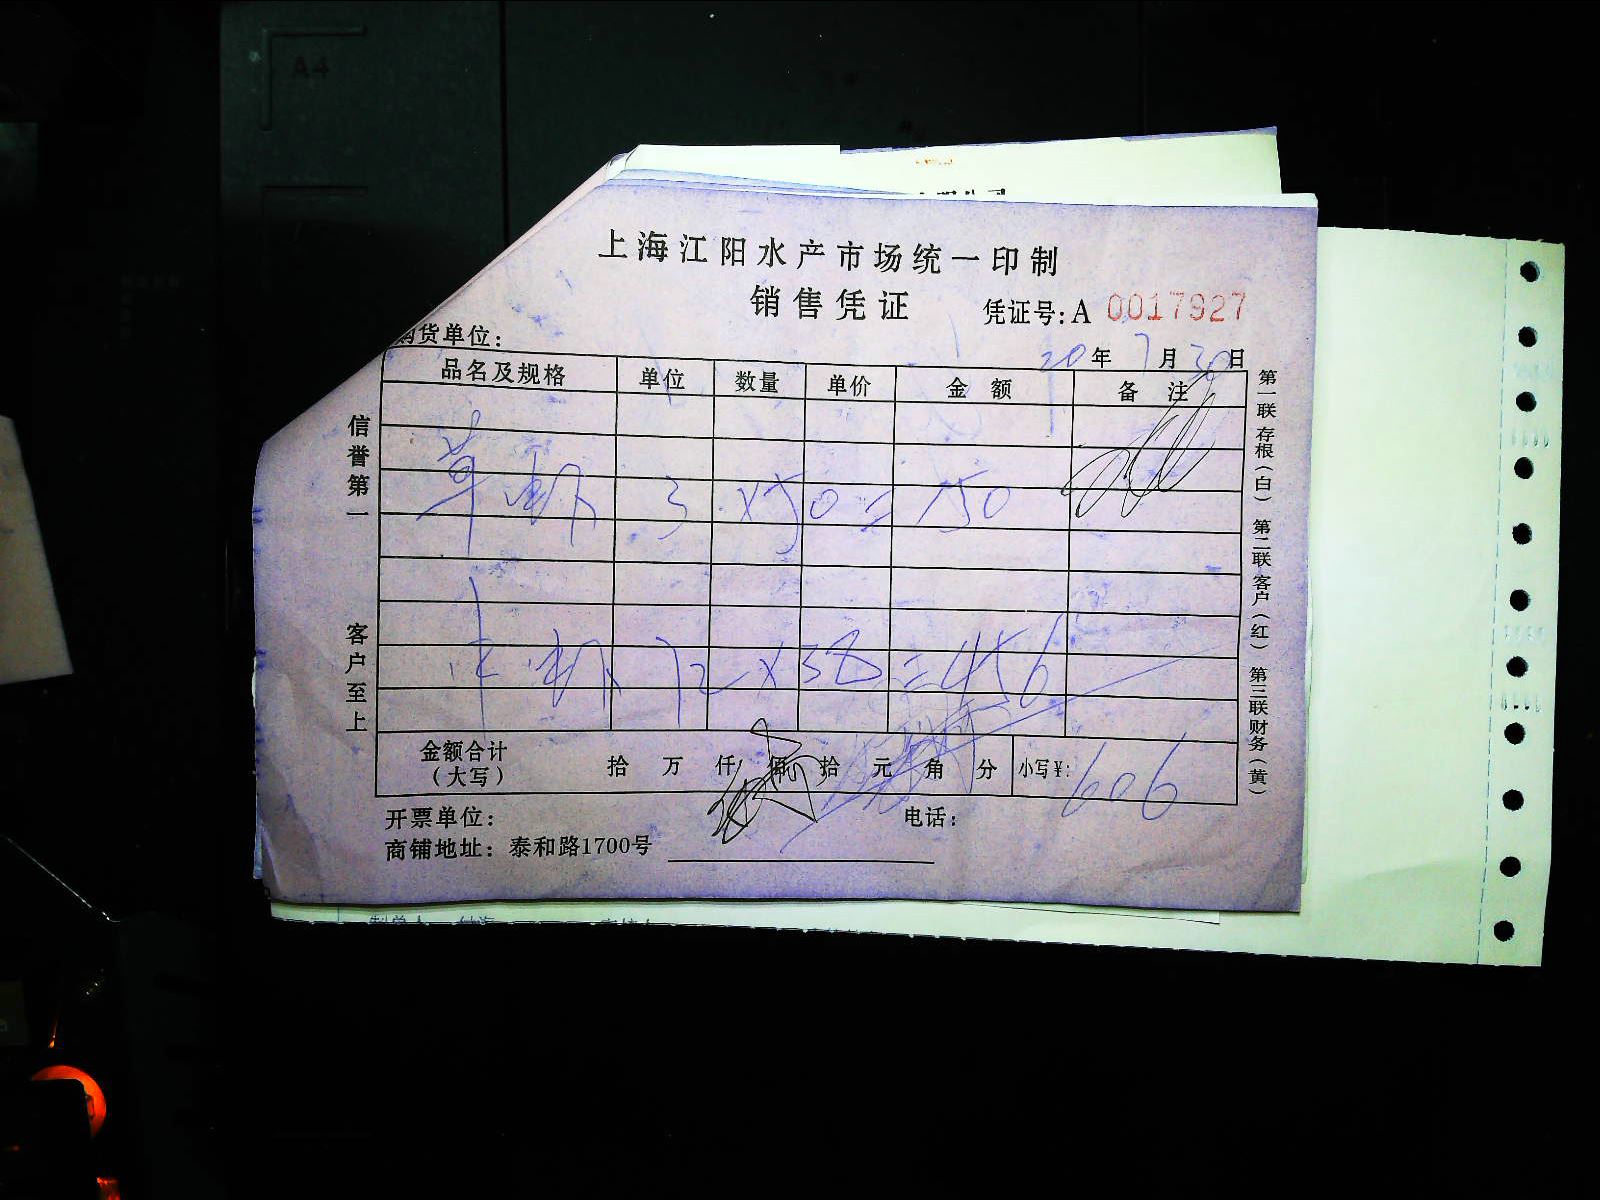 A4
上海江阳水产市场统一印制
销售凭证 凭证号:A 0017927
购货单位:
20年7月30日
品名及规格 单位 数量 单价 金额 备注
草虾 3 ×50=150
12×38=456
金额合计(大写) 拾万仟佰拾元角分 小写¥:606
开票单位: 电话:
商铺地址: 泰和路1700号
信誉第一
客户至上
第一联存根(白) 第二联客户(红) 第三联财务(黄)